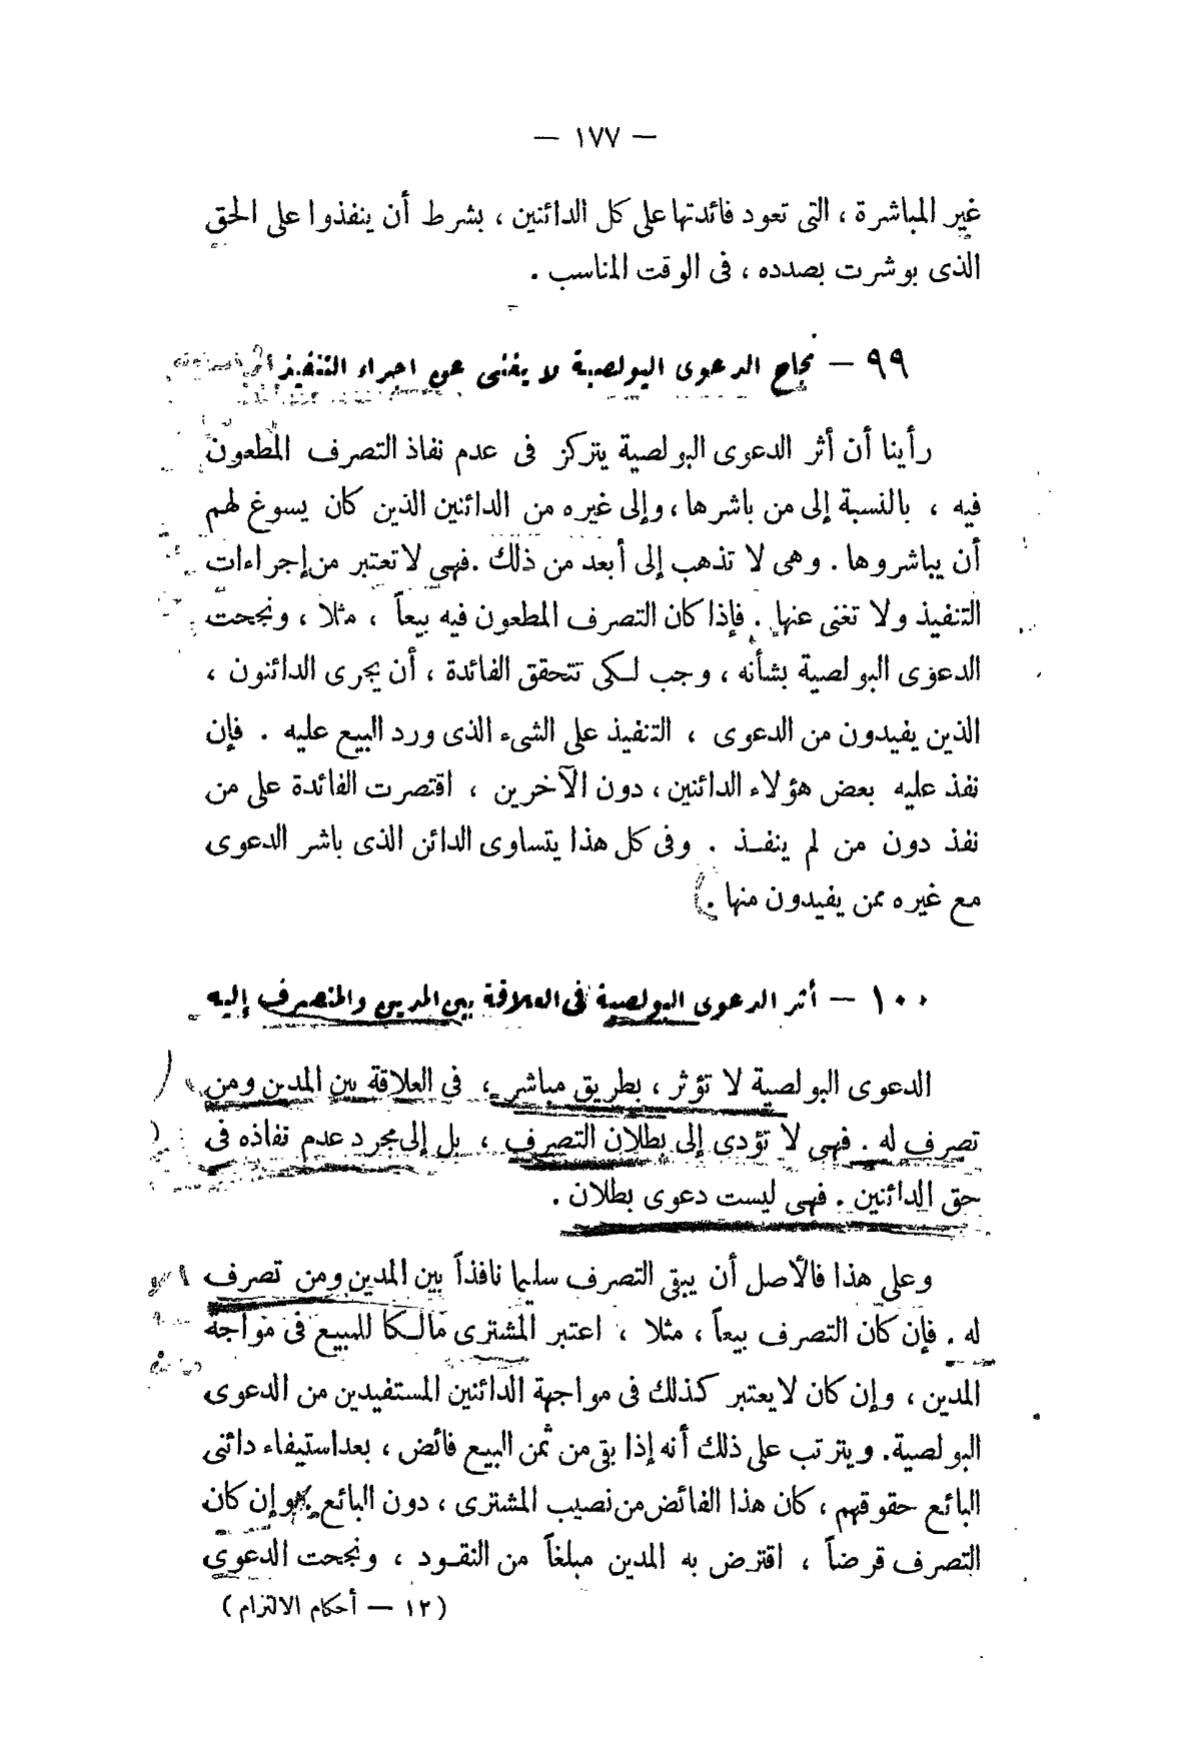 — ١٧٧ —
غير المباشرة ، التى تعود فائدتها على كل الدائنين ، بشرط أن ينفذوا على الحق
الذى بوشرت بصدده ، فى الوقت المناسب .
٩٩ — نجاح الدعوى البولصية لا يغنى عن اجراء التنفيذ
رأينا أن أثر الدعوى البولصية يتركز فى عدم نفاذ التصرف المطعون
فيه ، بالنسبة إلى من باشرها ، وإلى غيره من الدائنين الذين كان يسوغ لهم
أن يباشروها . وهى لا تذهب إلى أبعد من ذلك . فهى لا تعتبر من إجراءات
التنفيذ ولا تغنى عنها . فإذا كان التصرف المطعون فيه بيعاً ، مثلا ، ونجحت
الدعوى البولصية بشأنه ، وجب لكى تتحقق الفائدة ، أن يجرى الدائنون ،
الذين يفيدون من الدعوى ، التنفيذ على الشىء الذى ورد البيع عليه . فإن
نفذ عليه بعض هؤلاء الدائنين ، دون الآخرين ، اقتصرت الفائدة على من
نفذ دون من لم ينفذ . وفى كل هذا يتساوى الدائن الذى باشر الدعوى
مع غيره ممن يفيدون منها .
١٠٠ — أثر الدعوى البولصية فى العلاقة بين المدين والمتصرف إليه
الدعوى البولصية لا تؤثر ، بطريق مباشر ، فى العلاقة بين المدين ومن
تصرف له . فهى لا تؤدى إلى بطلان التصرف ، بل إلى مجرد عدم نفاذه فى
حق الدائنين . فهى ليست دعوى بطلان .
وعلى هذا فالأصل أن يبقى التصرف سليما نافذاً بين المدين ومن تصرف
له . فإن كان التصرف بيعاً ، مثلا ، اعتبر المشترى مالكا للمبيع فى مواجهة
المدين ، وإن كان لا يعتبر كذلك فى مواجهة الدائنين المستفيدين من الدعوى
البولصية . ويترتب على ذلك أنه إذا بقى من ثمن البيع فائض ، بعد استيفاء دائنى
البائع حقوقهم ، كان هذا الفائض من نصيب المشترى ، دون البائع . وإن كان
التصرف قرضاً ، اقترض به المدين مبلغاً من النقود ، ونجحت الدعوى
(١٢ — أحكام الالتزام)